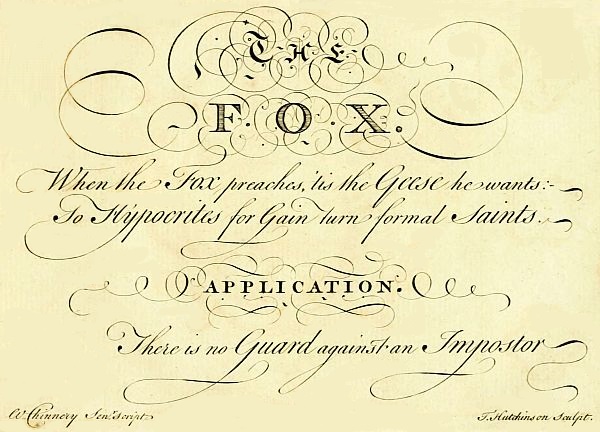 THE
F.O.X.
When the Fox preaches, 'tis the Geese he wants:-
So Hypocrites for Gain turn formal Saints.
APPLICATION.
There is no Guard against an Impostor
W. Chinnery Senr. Script.
T. Hutchinson Sculpt.